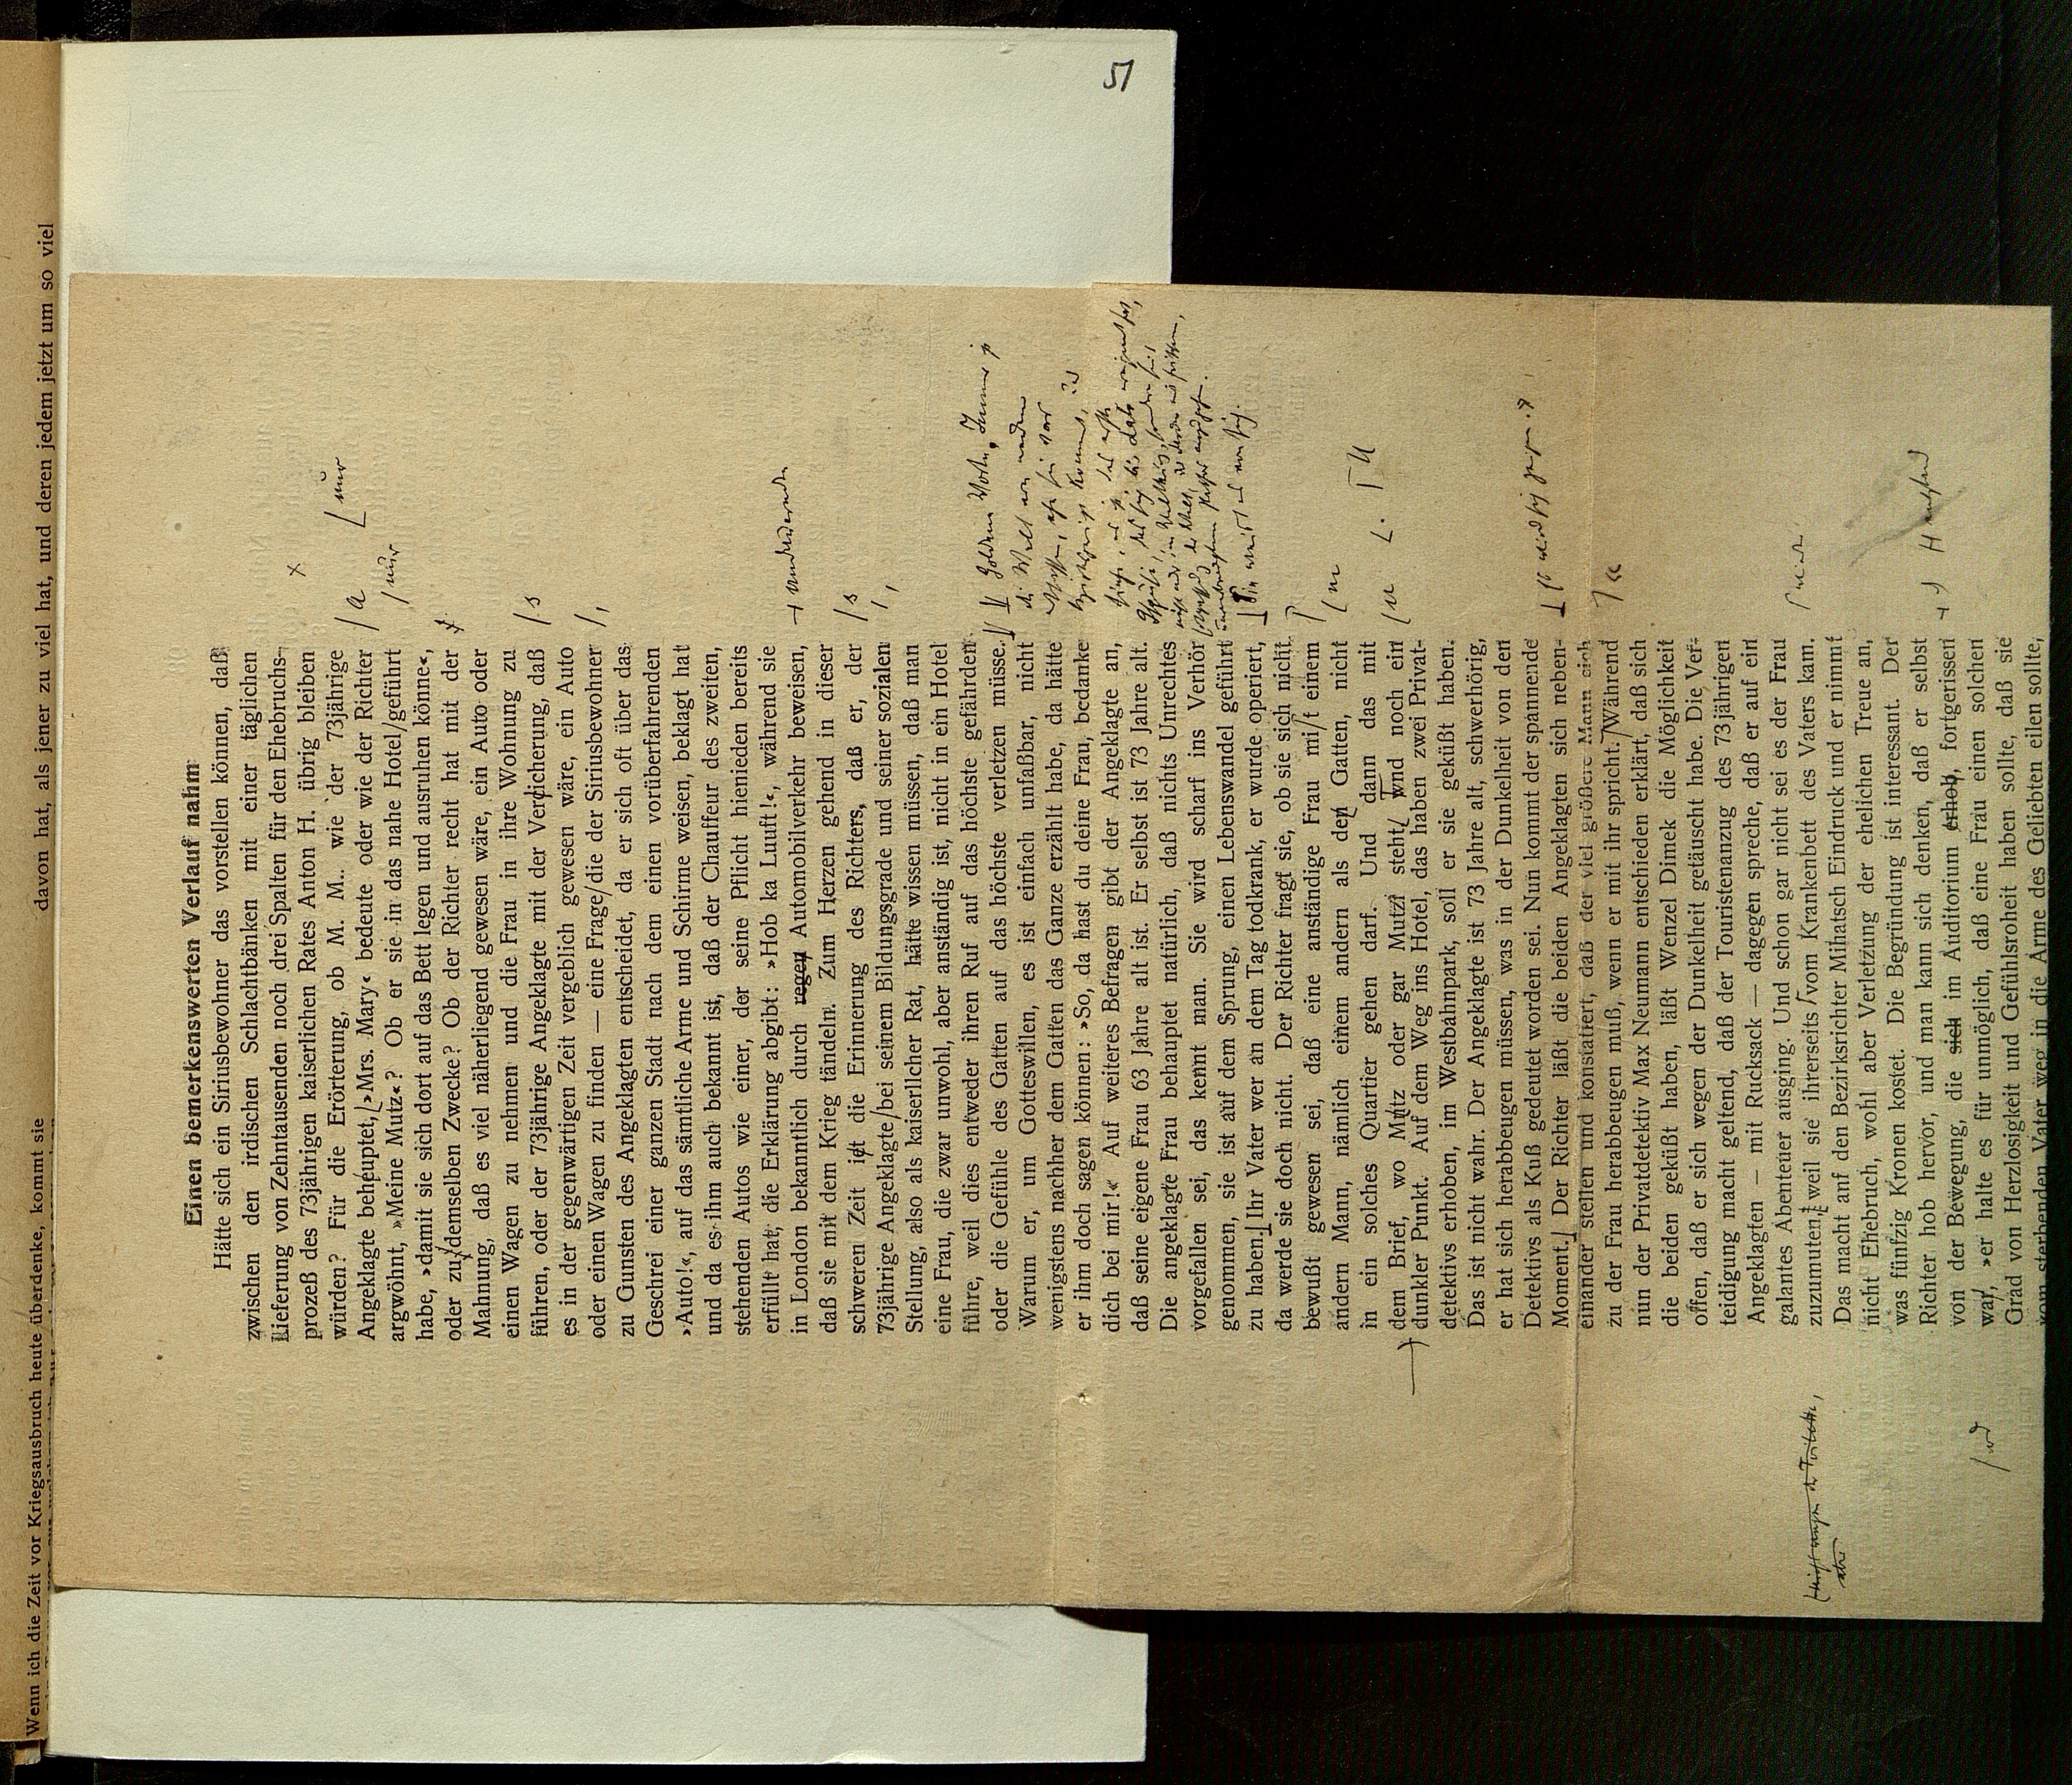 51
davon hat, als jener zu viel hat, und deren jedem jetzt um so viel
Wenn ich die Zeit vor Kriegsausbruch heute überdenke, kommt sie
Einen bemerkenswerten Verlauf nahm
Hätte sich ein Siriusbewohner das vorstellen können, daß
zwischen den irdischen Schlachtbänken mit einer täglichen
Lieferung von Zehntausenden noch drei Spalten für den Ehebruchs-
prozeß des 73jährigen kaiserlichen Rates Anton H. übrig bleiben
würden? Für die Erörterung, ob M. M.. wie der 73jährige
Angeklagte beheuptet, »Mrs. Mary« bedeute oder wie der Richter
argwöhnt, »Meine Mutz«? Ob er sie in das nahe Hotel geführt
habe, »damit sie sich dort auf das Bett legen und ausruhen könne«,
oder zu demselben Zwecke? Ob der Richter recht hat mit der
Mahnung, daß es viel näherliegend gewesen wäre, ein Auto oder
einen Wagen zu nehmen und die Frau in ihre Wohnung zu
führen, oder der 73jährige Angeklagte mit der Verdicherung, daß
es in der gegenwärtigen Zeit vergeblich gewesen wäre, ein Auto
oder einen Wagen zu finden — eine Frage die der Siriusbewohner
zu Gunsten des Angeklagten entscheidet, da er sich oft über das
Geschrei einer ganzen Stadt nach dem einen vorüberfahrenden
»Auto!«, auf das sämtliche Arme und Schirme weisen, beklagt hat
und da es ihm auch bekannt ist, daß der Chauffeur des zweiten,
stehenden Autos wie einer, der seine Pflicht hienieden bereits
erfüllt hat, die Erklärung abgibt: »Hob ka Luuft!«, während sie
in London bekanntlich durch regen Automobilverkehr beweisen,
daß sie mit dem Krieg tändeln. Zum Herzen gehend in dieser
schweren Zeit ist die Erinnerung des Richters, daß er, der
73jährige Angeklagte bei seinem Bildungsgrade und seiner sozialen
Stellung, also als kaiserlicher Rat, hätte wissen müssen, daß man
eine Frau, die zwar unwohl, aber anständig ist, nicht in ein Hotel
führe, weil dies entweder ihren Ruf auf das höchste gefährden
oder die Gefühle des Gatten auf das höchste verletzen müsse.
Warum er, um Gotteswillen, es ist einfach unfaßbar, nicht
wenigstens nachher dem Gatten das Ganze erzählt habe, da hätte
er ihm doch sagen können: »So, da hast du deine Frau, bedanke
dich bei mir!« Auf weiteres Befragen gibt der Angeklagte an,
daß seine eigene Frau 63 Jahre alt ist. Er selbst ist 73 Jahre alt.
Die angeklagte Frau behauptet natürlich, daß nichts Unrechtes
vorgefallen sei, das kennt man. Sie wird scharf ins Verhör
genommen, sie ist auf dem Sprung, einen Lebenswandel geführt
zu haben. Ihr Vater wer an dem Tag todkrank, er wurde operiert,
da werde sie doch nicht. Der Richter fragt sie, ob sie sich nicht
bewußt gewesen sei, daß eine anständige Frau mit einem
andern Mann, nämlich einem andern als den Gatten, nicht
in ein solches Quartier gehen darf. Und dann das mit
dem Brief, wo Mutz oder gar Mutzi steht, und noch ein
dunkler Punkt. Auf dem Weg ins Hotel, das haben zwei Privat-
detektivs erhoben, im Westbahnpark, soll er sie geküßt haben.
Das ist nicht wahr. Der Angeklagte ist 73 Jahre alt, schwerhörig,
er hat sich herabbeugen müssen, was in der Dunkelheit von den
Detektivs als Kuß gedeutet worden sei. Nun kommt der spannende
Moment. Der Richter läßt die beiden Angeklagten sich neben-
einander stellen und konstatiert, daß der viel größere Mann sich
zu der Frau herabbeugen muß, wenn er mit ihr spricht. Während
nun der Privatdetektiv Max Neumann entschieden erklärt, daß sich
die beiden geküßt haben, läßt Wenzel Dimek die Möglichkeit
offen, daß er sich wegen der Dunkelheit getäuscht habe. Die Ver-
teidigung macht geltend, daß der Touristenanzug des 73jährigen
Angeklagten — mit Rucksack — dagegen spreche, daß er auf ein
galantes Abenteuer ausging. Und schon gar nicht sei es der Frau
zuzumuten, weil sie ihrerseits vom Krankenbett des Vaters kam.
Das macht auf den Bezirksrichter Mihatsch Eindruck und er nimmt
nicht Ehebruch, wohl aber Verletzung der ehelichen Treue an,
was fünfzig Kronen kostet. Die Begründung ist interessant. Der
Richter hob hervor, und man kann sich denken, daß er selbst
von der Bewegung, die sich im Auditorium erhob, fortgerissen
war, »er halte es für unmöglich, daß eine Frau einen solchen
Grad von Herzlosigkeit und Gefühlsroheit haben sollte, daß sie
vom sterbenden Vater weg in die Arme des Geliebten eilen sollte,
a
nur
nur
s
s
«